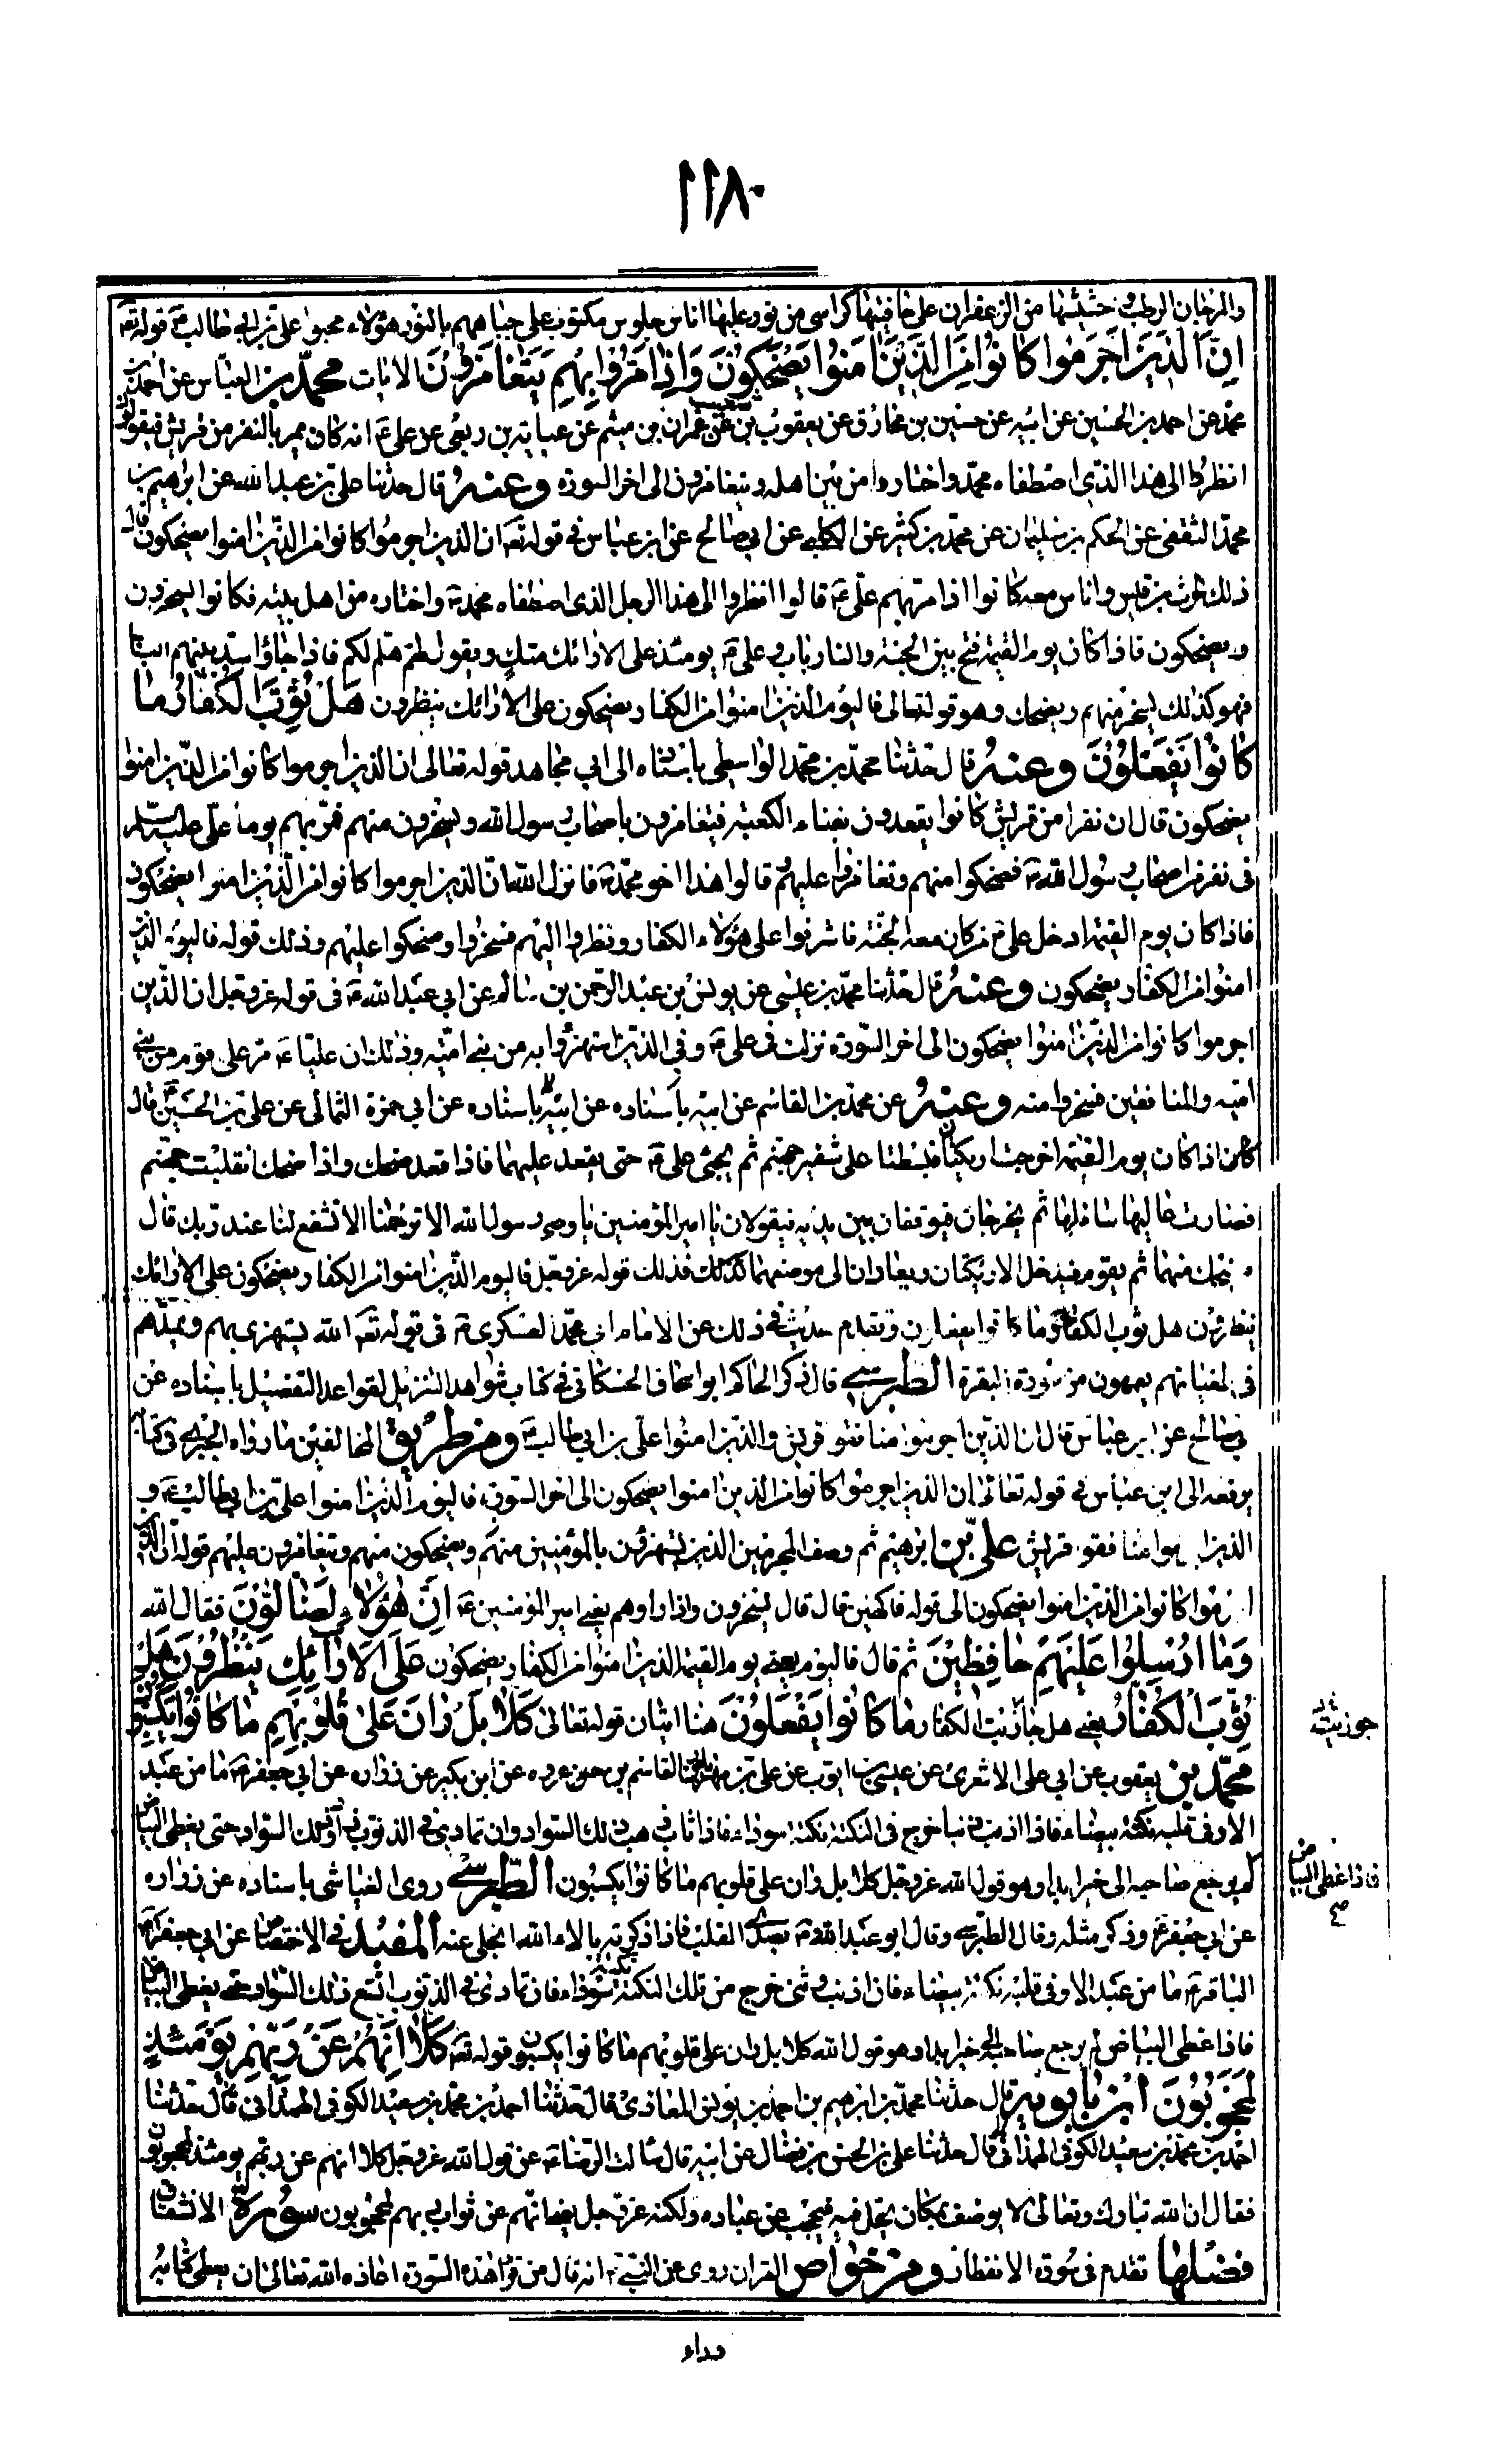 ١١٨٠
والمرجان الرطب وحشيشها من الزعفران على حافيتها كراسي من نور عليها اناس جلوس مكتوب على جباههم بالنور هؤلاء محبوا علي بن ابي طالب ع قوله تعه
ان الذين اجرموا كانوا من الذين امنوا يضحكون واذا مروا بهم يتغامزون الايات محمد بن العباس عن احمد بن
محمد عن احمد بن الحسين عن ابيه عن حسين بن مخارق عن يعقوب بن شعيب عن عمران بن ميثم عن عباية بن ربعي عن علي ع انه كان يمر بالنفر من قريش فيقولون
انظروا الى هذا الذي اصطفاه محمد واختاره من بين اهله ويتغامزون الى اخر السورة وعنه قال حدثنا علي بن عبد الله عن ابرهيم بن
محمد الثقفي عن الحكم بن سليمان عن محمد بن كثير عن الكلبي عن ابي صالح عن ابن عباس في قوله تعه ان الذين اجرموا كانوا من الذين امنوا يضحكون قال
ذلك حرث بن قيس واناس معه كانوا اذا مر بهم علي ع قالوا انظروا الى هذا الرجل الذي اصطفاه محمد ص واختاره من اهل بيته فكانوا يسخرون
ويضحكون فاذا كان يوم القيمة فتح بين الجنة والنار باب وعلي ع يومئذ على الارائك متك ويقول لهم هلم لكم فاذا جاؤا سد بينهم الباب
فهو كذلك يسخر منهم ويضحك وهو قوله تعالى فاليوم الذين امنوا من الكفار يضحكون على الارائك ينظرون هل ثوب الكفار ما
كانوا يفعلون وعنه قال حدثنا محمد بن محمد الواسطي باسناده الى ابي مجاهد قوله تعالى ان الذين اجرموا كانوا من الذين امنوا
يضحكون قال ان نفرا من قريش كانوا يقعدون بفناء الكعبة فيتغامزون باصحاب رسول الله ويسخرون منهم فمر بهم يوما علي عليه السلم
في نفر من اصحاب رسول الله ص فضحكوا منهم وتغامزوا عليهم وقالوا هذا اخو محمد ص فانزل الله ان الذين اجرموا كانوا من الذين امنوا يضحكون
فاذا كان يوم القيمة ادخل علي ع من كان معه الجنة فاشرفوا على هؤلاء الكفار ونظروا اليهم فسخروا وضحكوا عليهم وذلك قوله فاليوم الذين
امنوا من الكفار يضحكون وعنه قال حدثنا محمد بن عيسى عن يونس بن عبد الرحمن بن سالم عن ابي عبد الله ع في قوله عز وجل ان الذين
اجرموا كانوا من الذين امنوا يضحكون الى اخر السورة نزلت في علي ع وفي الذين استهزؤا به من بني امية وذلك ان عليا ع مر على قوم من بني
امية والمنافقين فسخروا منه وعنه عن محمد بن القاسم عن ابيه باسناده عن ابيه باسناده عن ابي حمزة الثمالي عن علي بن الحسين ع قال
اذا كان يوم القيمة اخرجت اريكتان فبسطتا على شفير جهنم ثم يجئ علي ع حتى يقعد عليهما فاذا قعد ضحك واذا ضحك انقلبت جهنم
فصارت عاليها سافلها ثم يخرجان فيوقفان بين يديه فيقولان يا امير المؤمنين يا وصي رسول الله الا ترحمنا الا تشفع لنا عند ربك قال
فيضحك منهما ثم يقوم فيدخل الاريكتان ويعادان الى موضعهما كذلك فذلك قوله عز وجل فاليوم الذين امنوا من الكفار يضحكون على الارائك
ينظرون هل ثوب الكفار ما كانوا يفعلون وتقدم حديث في ذلك عن الامام ابي محمد العسكري ع في قوله تعه الله يستهزئ بهم ويمدهم
في طغيانهم يعمهون من سورة البقرة الطبرسي قال ذكر الحاكم ابو اسحاق الحسكاني في كتاب شواهد التنزيل لقواعد التفضيل باسناده عن
ابي صالح عن ابن عباس قال ان الذين اجرموا منافقوا قريش والذين امنوا علي بن ابي طالب ع ومن طريق المخالفين ما رواه الحبري في كتابه
يرفعه الى ابن عباس في قوله تعالى ان الذين اجرموا كانوا من الذين امنوا يضحكون الى اخر السورة فاليوم الذين امنوا علي بن ابي طالب ع و
الذين اجرموا منافقو قريش علي بن ابرهيم ثم وصف المجرمين الذين يستهزؤن بالمؤمنين منهم ويضحكون منهم ويتغامزون عليهم قوله ان الذين
اجرموا كانوا من الذين امنوا يضحكون الى قوله فاكهين قال قال يسخرون واذا راوهم يعني امير المؤمنين ع ان هؤلاء لضالون فقال الله
وما ارسلوا عليهم حافظين ثم قال فاليوم يعني يوم القيمة الذين امنوا من الكفار يضحكون على الارائك ينظرون هل
ثوب الكفار يعني هل جازيت الكفار ما كانوا يفعلون قوله تعالى كلا بل ران على قلوبهم ما كانوا يكسبون
محمد بن يعقوب عن ابي علي الاشعري عن عيسى بن ايوب عن علي بن مهزيار عن القاسم بن عروه عن ابن بكير عن زراره عن ابي جعفر ع ما من عبد
الا وفي قلبه نكتة بيضاء فاذا اذنب ذنبا خرج في النكتة نكتة سوداء فاذا تاب ذهب ذلك السواد وان تمادى في الذنوب زاد ذلك السواد حتى يغطي البياض
لم يرجع صاحبه الى خير ابدا وهو قول الله عز وجل كلا بل ران على قلوبهم ما كانوا يكسبون الطبرسي روى العياشي باسناده عن زراره
عن ابي جعفر ع وذكر مثله وقال الطبرسي وقال ابو عبد الله ع يصدى القلب فاذا ذكرته بالاء الله انجلى عنه المفيد في الاختصاص عن ابي جعفر
الباقر ع ما من عبد الا وفي قلبه نكتة بيضاء فان اذنب وثنى خرج من تلك النكتة نكتة سوداء فان تمادى في الذنوب اتسع ذلك السواد حتى يغطي البياض
فاذا غطى البياض لم يرجع صاحبه الى خير ابدا وهو قول الله كلا بل ران على قلوبهم ما كانوا يكسبون قوله تعه كلا انهم عن ربهم يومئذ
لمحجوبون ابن بابويه قال حدثنا محمد بن ابرهيم بن احمد بن يونس المعاذي قال حدثنا احمد بن محمد بن سعيد الكوفي الهمداني قال حدثنا
احمد بن محمد بن سعيد الكوفي الهمداني قال حدثنا علي بن الحسن بن فضال عن ابيه قال سالت الرضا ع عن قول الله عز وجل كلا انهم عن ربهم يومئذ لمحجوبون
فقال ان الله تبارك وتعالى لا يوصف بمكان يحل فيه فيحجب عن عباده ولكنه عز وجل يعني انهم عن ثواب ربهم لمحجوبون سورة الانشقاق
فضلها تقدم في سورة الانفطار ومن خواص القران روى عن النبي ص انه قال من قرا هذه السورة اعاذه الله تعالى ان يعطى كتابه
جوزيت
فاذا غطى البياض
صح
وراء